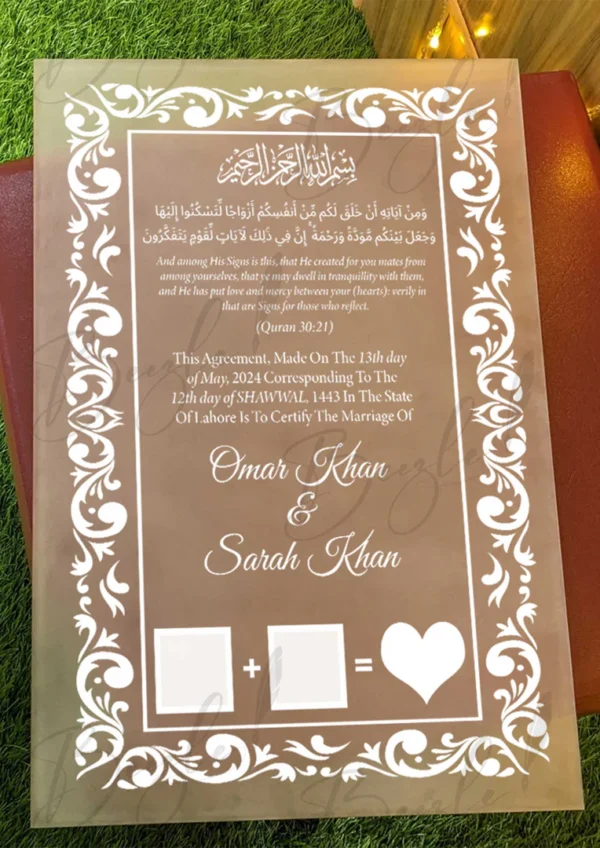 بِسْمِ اللهِ الرَّحْمٰنِ الرَّحِيْمِ
وَمِنْ آيَاتِهِ أَنْ خَلَقَ لَكُم مِّنْ أَنفُسِكُمْ أَزْوَاجًا لِّتَسْكُنُوا إِلَيْهَا
وَجَعَلَ بَيْنَكُم مَّوَدَّةً وَرَحْمَةً ۚ إِنَّ فِي ذَٰلِكَ لَآيَاتٍ لِّقَوْمٍ يَتَفَكَّرُونَ
And among His Signs is this, that He created for you mates from
among yourselves, that ye may dwell in tranquillity with them,
and He has put love and mercy between your (hearts): verily in
that are Signs for those who reflect.
(Quran 30:21)
This Agreement, Made On The 13th day
of May, 2024 Corresponding To The
12th day of SHAWWAL, 1443 In The State
Of Lahore Is To Certify The Marriage Of
Omar Khan
&
Sarah Khan
+ =
Beezle